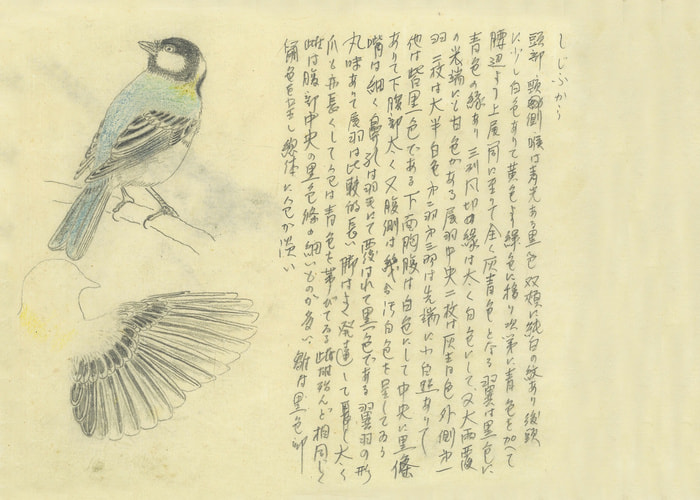 しじふから
頭部 頸側 喉は青光ある黒色 双頬に純白の紋あり 後頭
に少し白色ありて黄色より緑色に移り次第に青色を加へて
腰辺より上尾筒に至りて全く灰青色となる 翼は黒色に
青色の縁あり 三列風切の縁は太く白色にして又大雨覆
の先端にも白色がある 尾羽中央二枚は灰青色 外側第一
羽二枚は大半白色 第二羽第三羽は先端に小白点ありて
他は皆黒色である 下面胸腹は白色にして中央に黒條
ありて下腹部太く 又腹側は幾分汚白色を呈してゐる
嘴は細く鼻孔は羽毛にて覆はれて黒色である 翼羽の形
丸味ありて尾羽は比較的長い 脚はよく発達して長く太く
爪も亦長くして色は青色を帯びてゐる 雌雄殆んど相同じく
雌は腹部中央の黒色條の細いものが多い、雛は黒色部
褐色を呈し 惣体に色が淡い